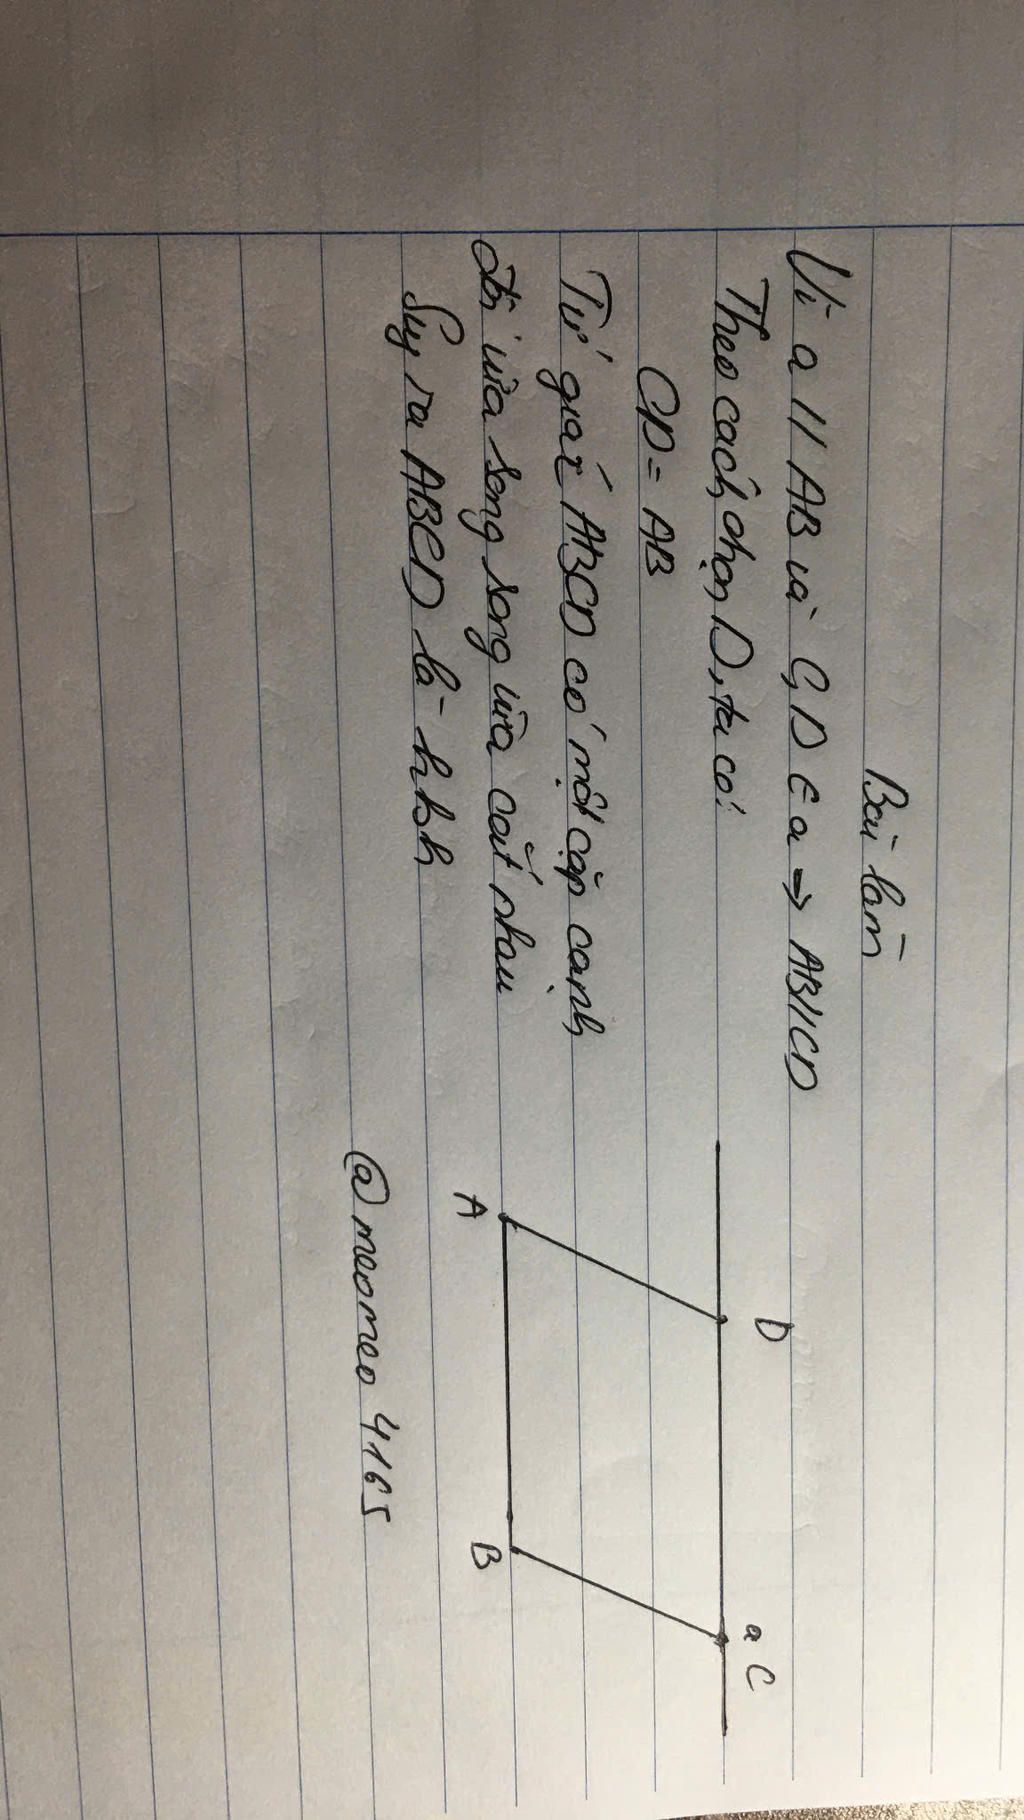 Bài làm
Vì a // AB và C, D ∈ a => AB // CD
Theo cách chọn D, ta có:
CD = AB
Tứ giác ABCD có một cặp cạnh
đối vừa song song vừa cắt nhau
Suy ra ABCD là hbh
D
a C
A
B
@meomeo 4165